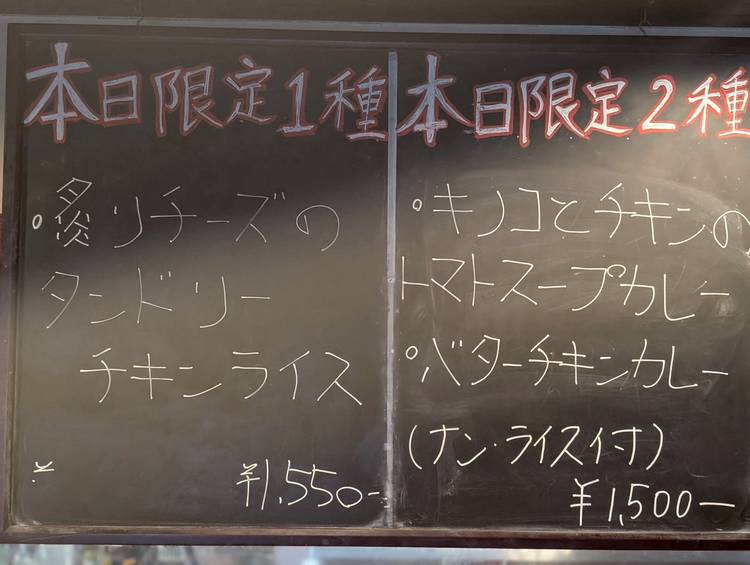 本日限定1種
・炙リチーズの
タンドリー
チキンライス
¥
¥1,550-
本日限定2種
・キノコとチキンの
トマトスープカレー
・バターチキンカレー
(ナン・ライス付)
¥1,500-